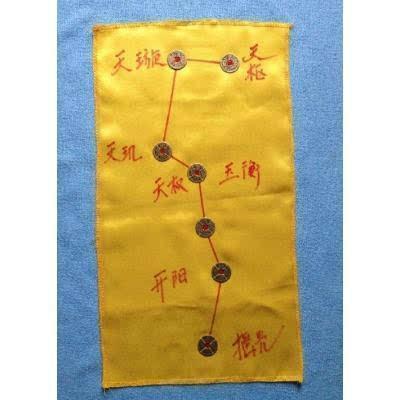 天璇
天枢
天玑
天权
玉衡
开阳
摇光